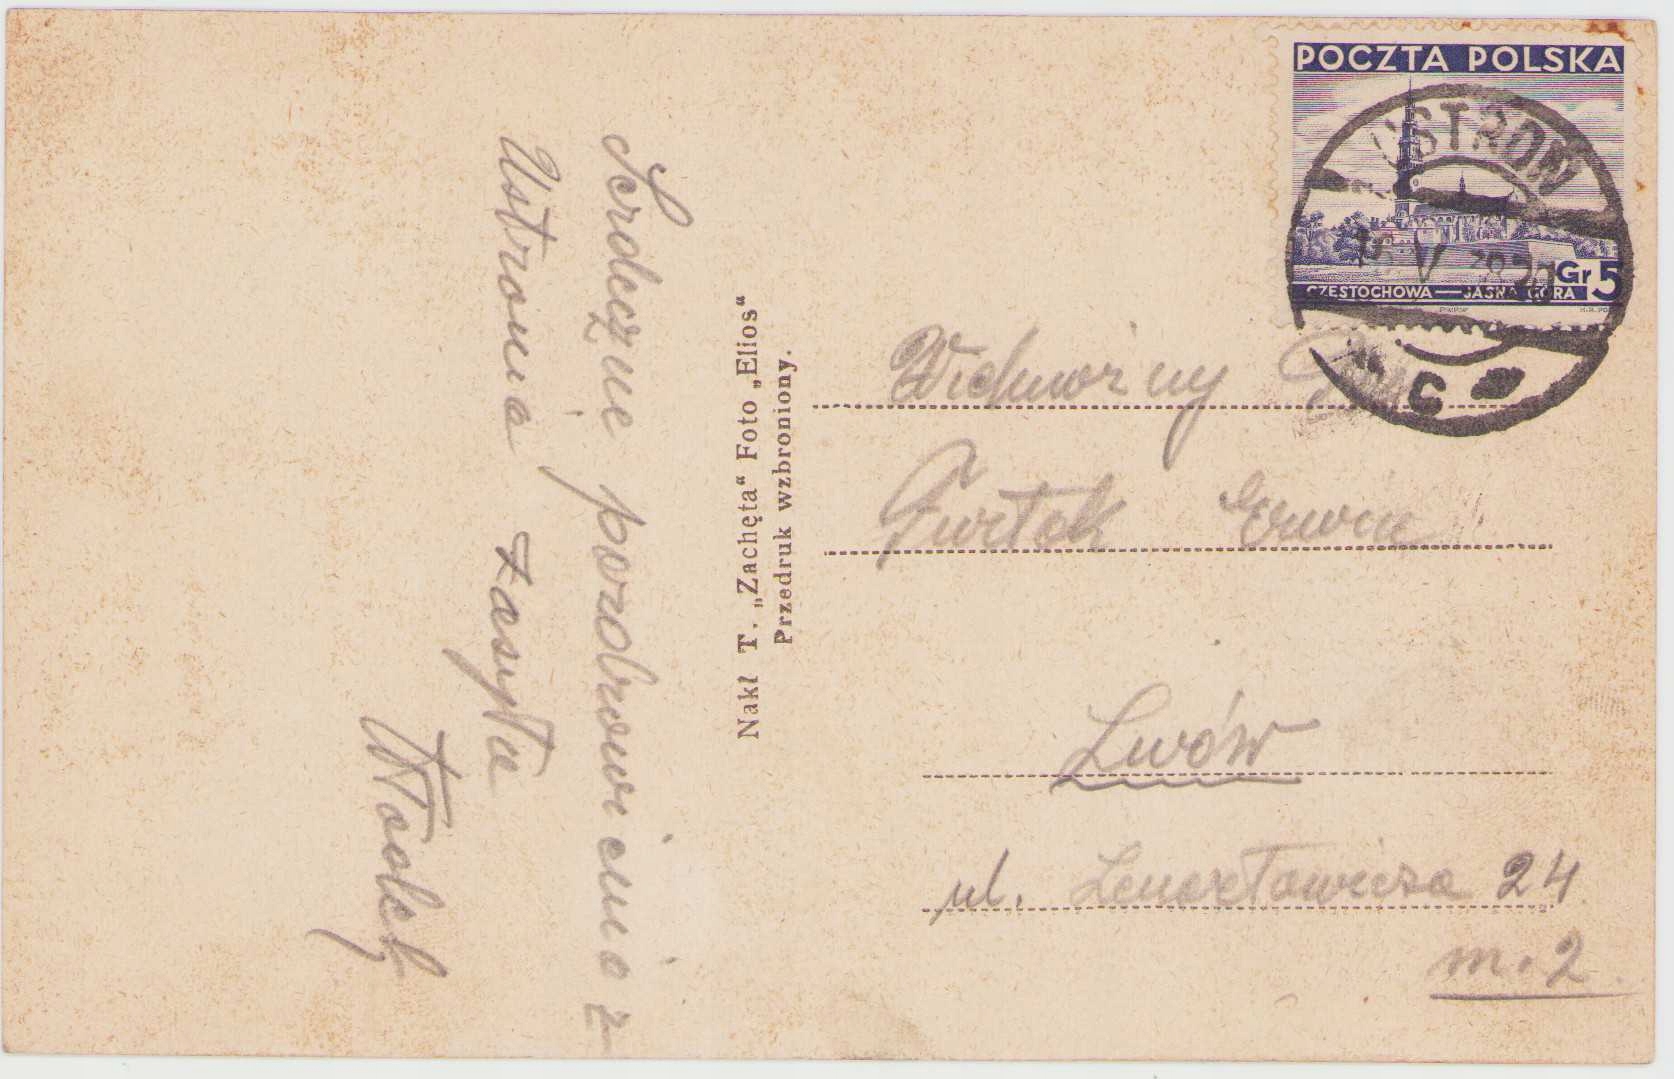 Serdeczne pozdrowienia z
Ustronia zasyła
Władek
Nakł T. „Zachęta“ Foto „Elios“
Przedruk wzbroniony.
POCZTA POLSKA
Gr 5
CZĘSTOCHOWA—JASNA GÓRA
USTROŃ
V 38
C
Wielmożny
Furtek Erwin
Lwów
ul. Lenartowicza 24
m. 2.